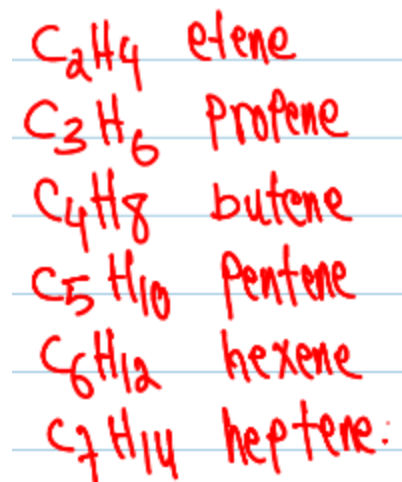 C2H4 etene
C3H6 propene
C4H8 butene
C5H10 Pentene
C6H12 hexene
C7H14 heptene.